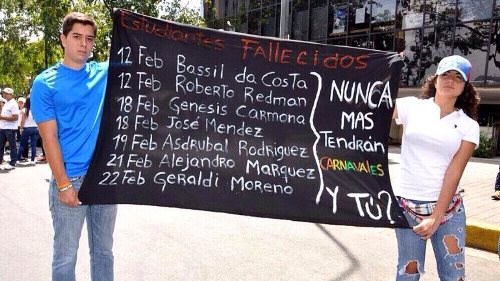 Estudiantes Fallecidos
12 Feb Bassil da Costa
12 Feb Roberto Redman
18 Feb Genesis Carmona
18 Feb José Mendez
19 Feb Asdrubal Rodriguez
21 Feb Alejandro Marquez
22 Feb Geraldi Moreno
NUNCA
MAS
TENDRÁN
CARNAVALES
Y TÚ?